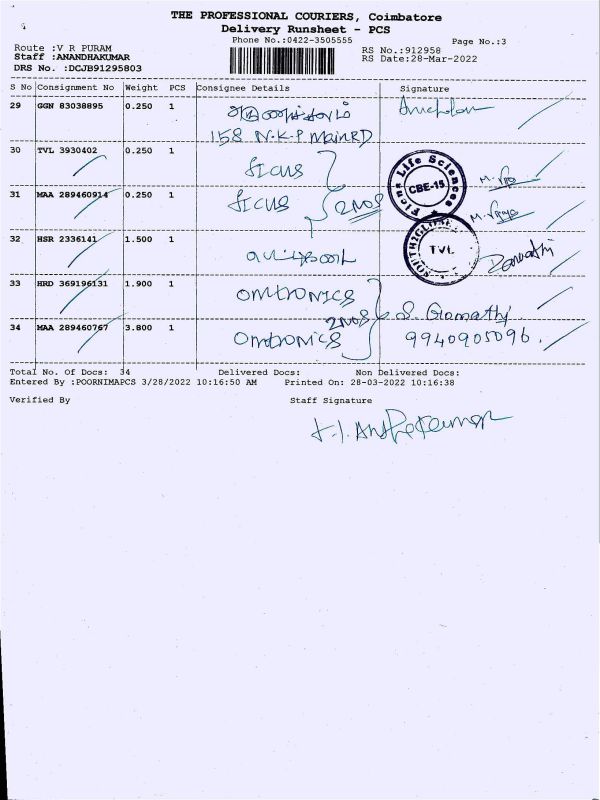 THE PROFESSIONAL COURIERS, Coimbatore
Delivery Runsheet - PCS
Phone No.:0422-3505555
Page No.:3
Route :V R PURAM
RS No.:912958
Staff :ANANDHAKUMAR
RS Date:28-Mar-2022
DRS No. :DCJB91295803
S No Consignment No Weight PCS Consignee Details Signature
29 GGN 83038895 0.250 1
158 N.K.P Main RD
30 TVL 3930402 0.250 1 ficus
31 MAA 289460914 0.250 1 ficus 2NOS
Ficus Life Sciences CBE-15
32 HSR 2336141 1.500 1
TVL
33 HRD 369196131 1.900 1 omtronics
2NOS S. Gomathi
34 MAA 289460767 3.800 1 Omtronics 9940905096.
Total No. of Docs: 34 Delivered Docs: Non Delivered Docs:
Entered By :POORNIMAPCS 3/28/2022 10:16:50 AM Printed On: 28-03-2022 10:16:38
Verified By Staff Signature